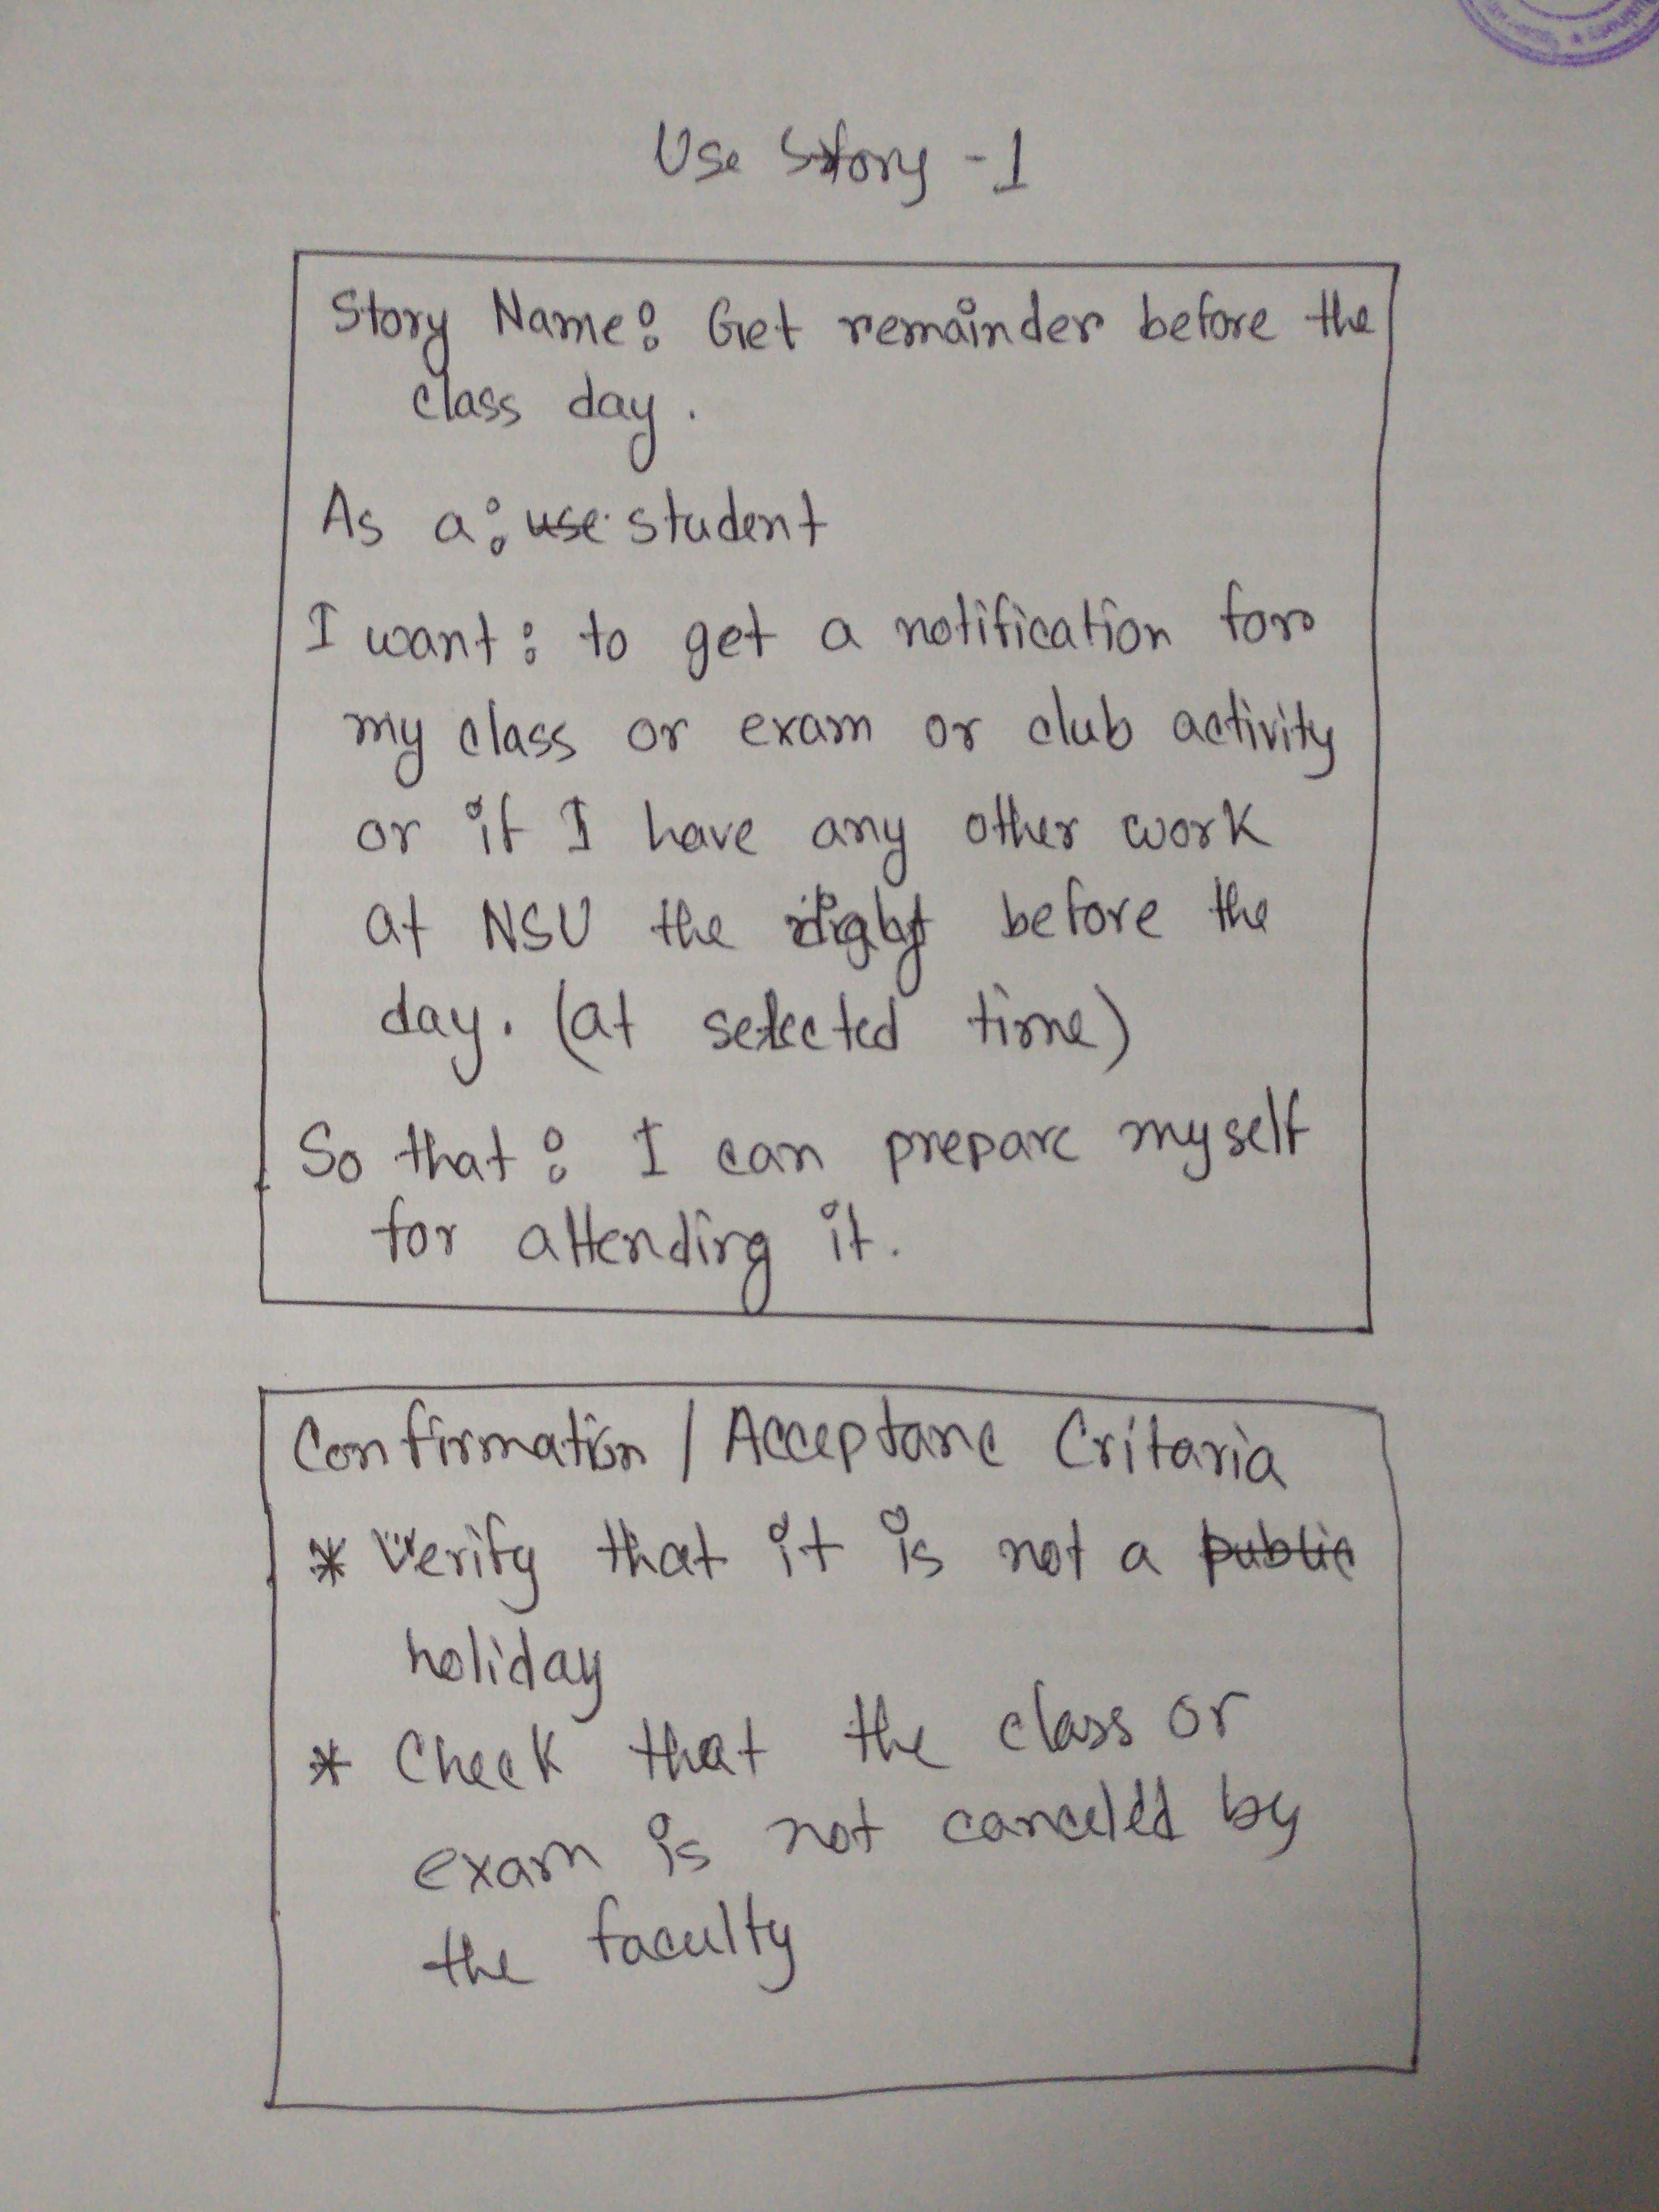 Use Story - 1
Story Name: Get remainder before the
class day.
As a: use student
I want: to get a notification for
my class or exam or club activity
or if I have any other work
at NSU the before the
day. (at selected time)
So that: I can prepare myself
for attending it.
Confirmation / Acceptanc Critaria
* Verify that it is not a public
holiday
* Check that the class or
exam is not canceled by
the faculty